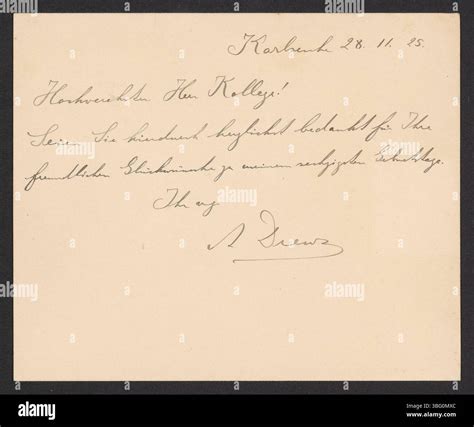 Karlsruhe 28. 11. 25.
Hochverehrter Herr Kollege!
Seien Sie hierdurch herzlichst bedankt für Ihre
freundlichen Glückwünsche zu meinem sechzigsten Geburtstage.
Ihr erg
A Drews
alamy
Image ID: 3BG0MXC
www.alamy.com